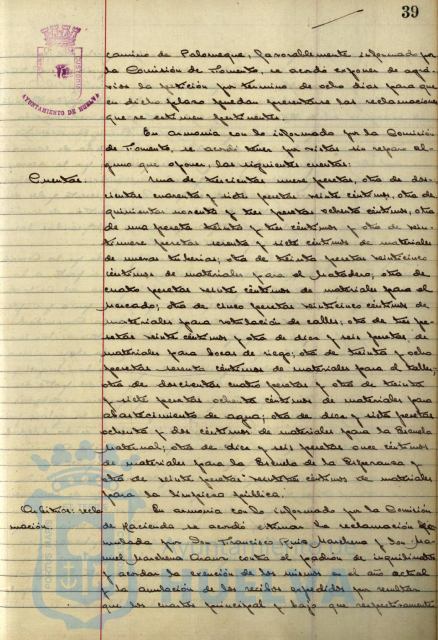 39
AYUNTAMIENTO DE HUELVA
camino de Palomeque, favorablemente informado por
la Comisión de Fomento, se acordó exponer de agra-
vios la petición por término de ocho días para que
en dicho plazo puedan presentarse las reclamaciones
que se estimen pertinentes.
En armonía con lo informado por la Comisión
de Fomento, se acordó tener por vistas sin reparo al-
guno que oponer, las siguientes cuentas:
Cuentas. Una de trescientas nueve pesetas, otra de dos-
cientas cuarenta y siete pesetas veinte céntimos, otra de
quinientas noventa y tres pesetas ochenta céntimos, otra
de una peseta treinta y tres céntimos y otra de vein-
tinueve pesetas sesenta y siete céntimos de materiales
de nuevas tuberías; otra de treinta pesetas veinticinco
céntimos de materiales para el Matadero; otra de
cuatro pesetas veinte céntimos de materiales para el
Mercado; otra de cinco pesetas veinticinco céntimos de
materiales para rotulación de calles; otra de tres pe-
setas veinte céntimos y otra de diez y seis pesetas, de
materiales para bocas de riego; otra de treinta y ocho
pesetas sesenta céntimos de materiales para el taller;
otra de doscientas cuatro pesetas y otra de treinta
y siete pesetas ochenta céntimos de materiales para
abastecimiento de agua; otra de diez y siete pesetas
ochenta y dos céntimos de materiales para la Escuela
Maternal; otra de diez y seis pesetas once céntimos
de materiales para la Escuela de la Esperanza y
otra de veinte pesetas setenta céntimos de materiales
para la limpieza pública.
Arbitrios: recla-
mación. En armonía con lo informado por la Comisión
de Hacienda se acordó estimar la reclamación for-
mulada por Don Francisco Ruiz Marchena y Don Ma-
nuel Marchena contra el padrón de inquilinato
y acordar la exención de los mismos en el año actual
y la anulación de los recibos expedidos por resultar
que los cuartos principal y bajo que respectivamente